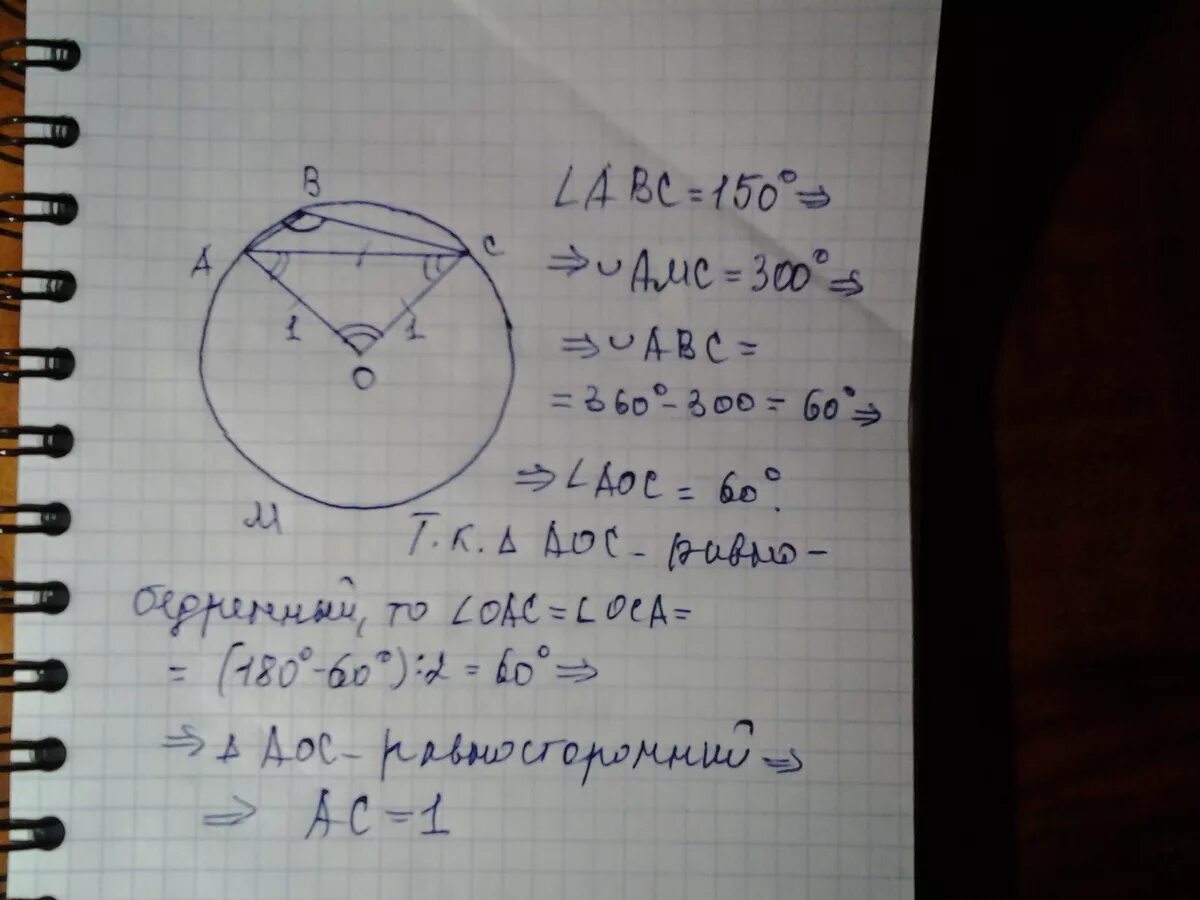 B
A
C
1
1
O
M
∠ABC = 150° ⇒
⇒ ∪AMC = 300° ⇒
⇒ ∪ABC =
= 360° - 300 = 60° ⇒
⇒ ∠AOC = 60°.
Т.к. △ AOC - равно-
бедренный, то ∠OAC = ∠OCA =
= (180° - 60°) : 2 = 60° ⇒
⇒ △ AOC - равносторонний ⇒
⇒ AC = 1